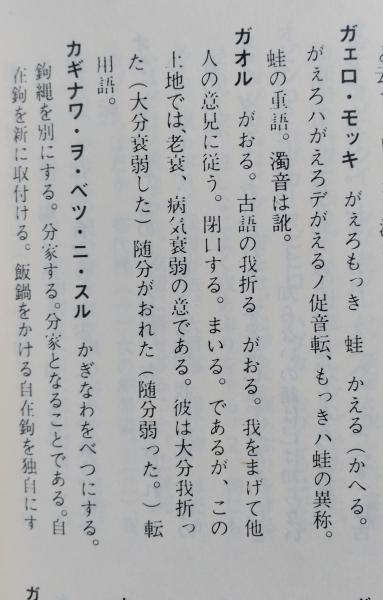 ガェロ・モッキ　がぇろもっき　蛙　かえる（かへる。
がぇろハがえろデがえるノ促音転、もっきハ蛙の異称。
蛙の重語。濁音は訛。
ガオル　がおる。古語の我折る　がおる。我をまげて他
人の意見に従う。閉口する。まいる。であるが、この
土地では、老衰、病気衰弱の意である。彼は大分我折っ
た（大分衰弱した）随分がおれた（随分弱った。）転
用語。
カギナワ・ヲ・ベツ・ニ・スル　かぎなわをべつにする。
鉤縄を別にする。分家する。分家となることである。自
在鉤を新に取付ける。飯鍋をかける自在鉤を独自にす
ガ